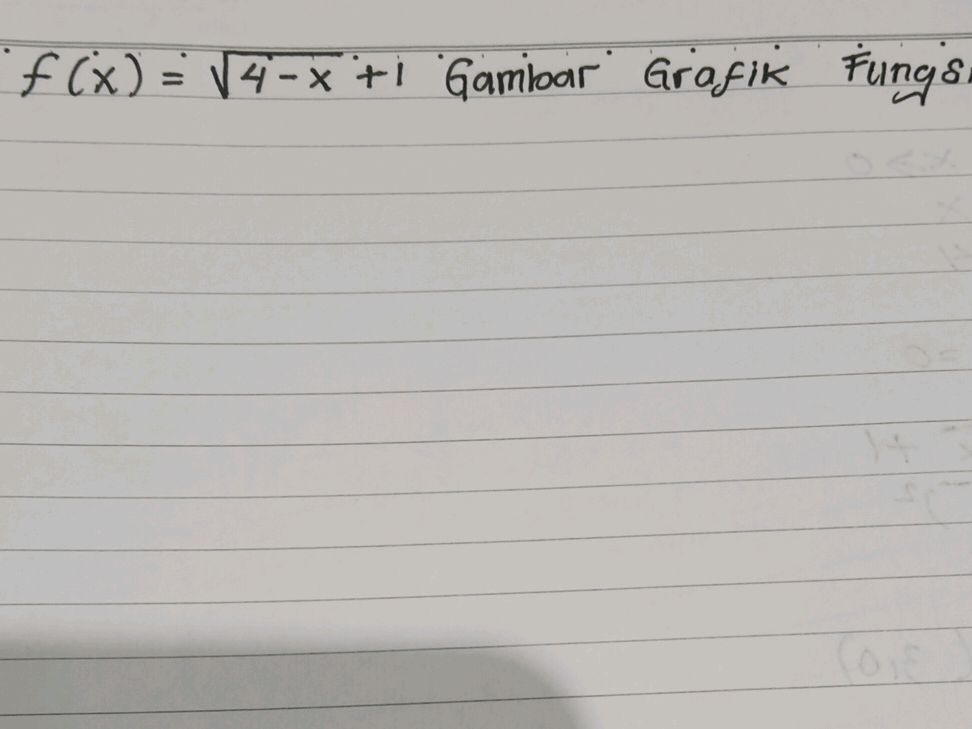 f(x) = √4-x +1 Gambar Grafik Fungsi